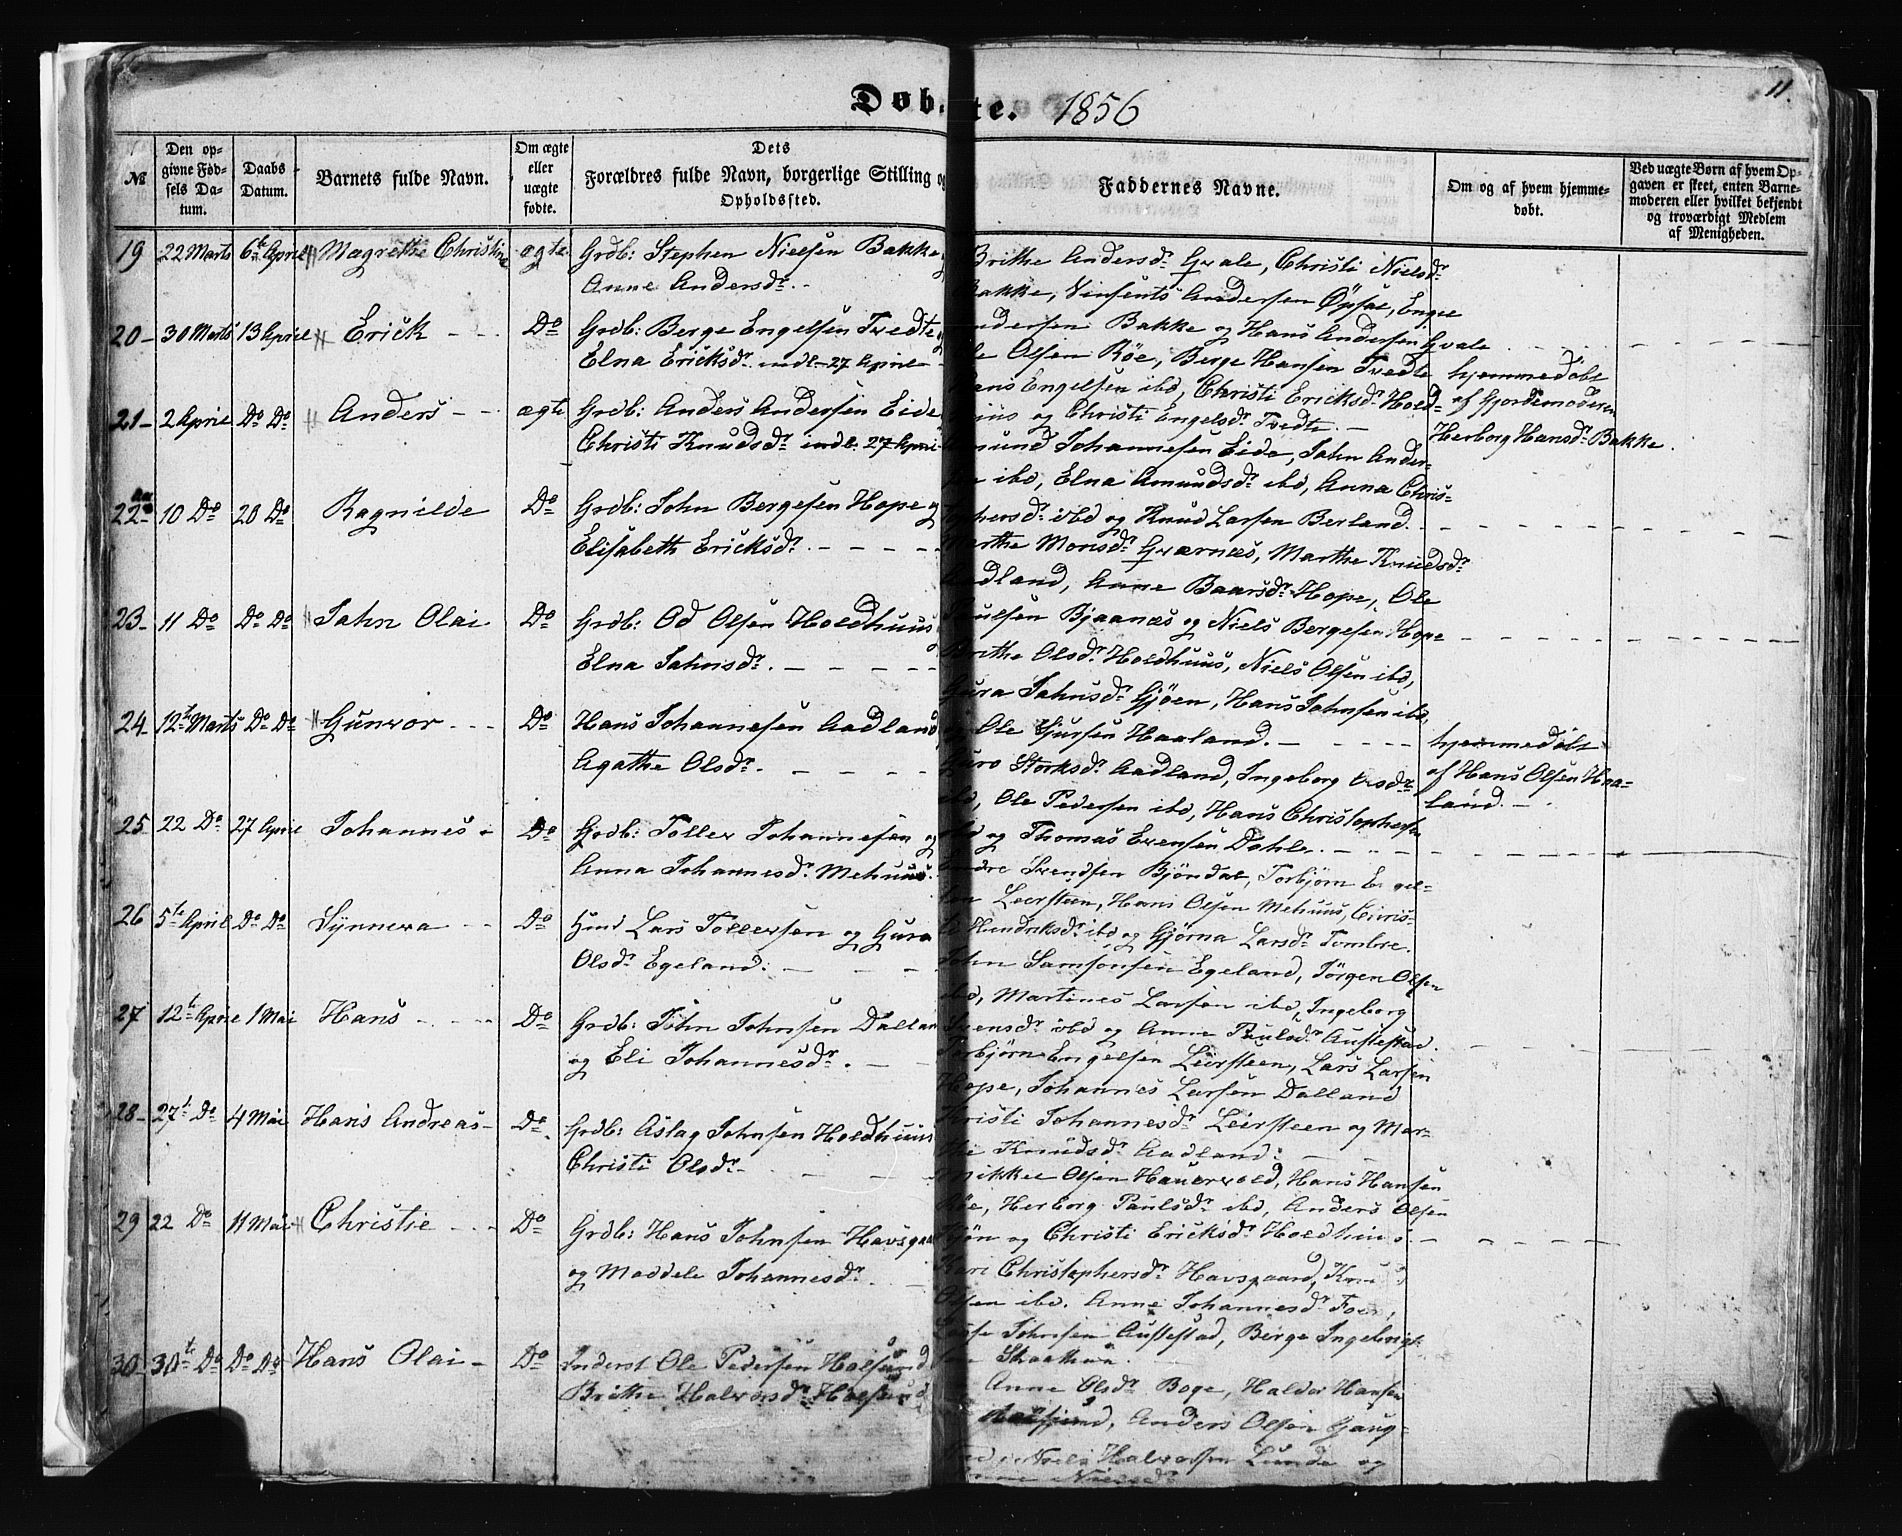 Døbte. 1856
11.
№
Den opgivne Fødsels Datum.
Daabs Datum.
Barnets fulde Navn.
Om ægte eller uægte fødte.
Dets
Forældres fulde Navn, borgerlige Stilling og
Opholdssted.
Faddernes Navne.
Om og af hvem hjemmedøbt.
Ved uægte Børn af hvem Opgaven er skeet, enten Barnemoderen eller hvilket bekjendt og troværdigt Medlem af Menigheden.
19 22 Marts 6te April Magrethe Christine ægte Grdb: Stephen Nielsen Bakke
Anne Andersdr.
Brithe Andersdr Gvale, Christi Nielsdr
Bakke, Vinsents Andersen Øpsal, Engel
Andersen Bakke og Hans Andersen Gvale
20 30 Marts 13 April Erick Do Grdb: Berge Engelsen Tvedte
Elna Ericksdr. indl. 27 April
Ole Olsen Röe, Berge Hansen Tvedte
Hans Engelsen ibd, Christi Ericksdr Hold-
huus og Christi Engelsdr Tvedte.
hjemmedöbt
af Gjordemoderen
Herborg Hansdr Bakke.
21 2 April Do Do Anders ægte Grdb: Anders Andersen Eide
Christi Knudsdr. indl. 27 April
Amund Johannesen Eide, John Ander-
sen ibd, Elna Amundsdr ibd, Anna Chris-
tophersdr ibd og Knud Larsen Berland.
22 10 Do 20 Do Ragnilde Do Grdb: John Bergesen Hope og
Elisabeth Ericksdr.
Marthe Monsdr Gværnæs, Marthe Knudsdr
Aadland, Anne Baarsdr Hope, Ole
Poulsen Bjaanæs og Niels Bergesen Hope
23 11 Do Do Do John Olai Do Grdb: Od Olsen Holdhuus
Elna Johnsdr.
Brithe Olsdr Holdhuus, Niels Olsen ibd,
Gura Johnsdr Gjöen, Hans Johnsen ibd,
og Ole Sjursen Haaland.
24 12te Marts Do Do Gunvor Do Hans Johannesen Aadland
Agathe Olsdr.
Guro Storksdr Aadland, Ingeborg Olsdr
ibd, Ole Pedersen ibd, Hans Christophersen
ibd og Thomas Evensen Dahle.
hjemmedöbt
af Hans Olsen Haa-
land.
25 22 Do 27 April Johannes Do Grdb: Toller Johannesen og
Anna Johannesdr. Mehuus.
Endre Svendsen Bjöndal, Torbjörn Engel-
sen Leirsteen, Hans Olsen Mehuus, Chris-
ti Hendriksdr ibd og Gjörna Larsdr Tombre.
26 5te April Do Do Synneva Do Huus Lars Tollersen og Gura
Olsdr Egeland.
John Samsonsen Egeland, Jörgen Olsen
ibd, Martines Larsen ibd, Ingeborg
Svensdr ibd og Anne Paulsdr Austestad.
27 12te April 1 Mai Hans Do Grdb: John Johnsen Dalland
og Eli Johannesdr.
Torbjörn Engelsen Leirsteen, Lars Larsen
Hope, Johannes Larsen Dalland
Christi Johannesdr Leirsteen og Mar-
the Knudsdr Aadland.
28 27te Do 4 Mai Hans Andreas Do Grdb: Aslag Johnsen Holdhuus
Christi Olsdr.
Mikkel Olsen Hauervold, Hans Hansen
Röe, Herborg Paulsdr ibd, Anders Olsen
Gjön og Christi Ericksdr Holdhuus.
29 22 Do 11 Mai Christie Do Grdb: Hans Johnsen Havsgaard
og Maddele Johannesdr.
Kari Christophersdr Havsgaard, Knud
Olsen ibd. Anne Johannesdr
Lasse Johnsen Austestad, Berge Ingebrigt-
sen
30 30te Do Do Do Hans Olai Do Inderst Ole Pedersen Holsund
Brithe Halvorsdr Holsund
Anne Olsdr Boge, Haldor Hansen
Holsund, Anders Olsen
Niels Halvorsen Lunde og
Anne Nielsdr